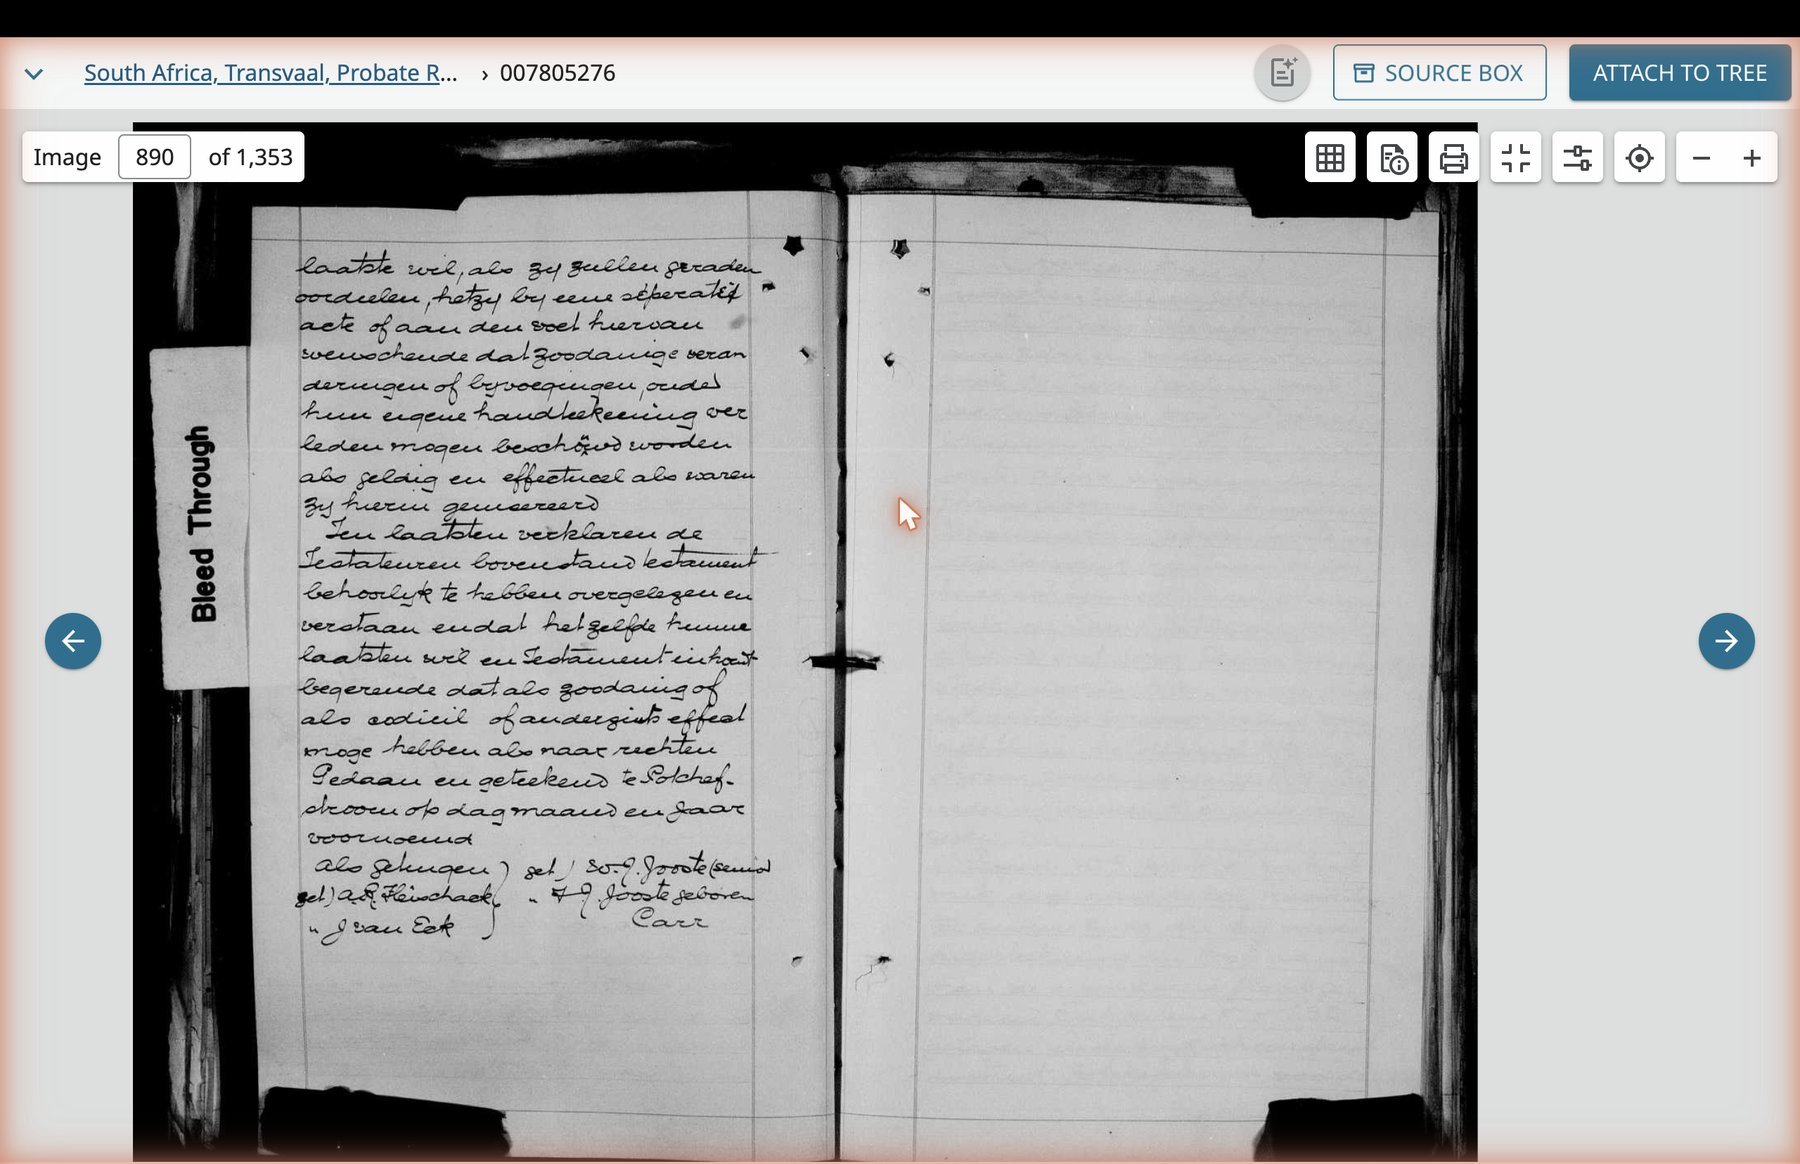 South Africa, Transvaal, Probate R... › 007805276
SOURCE BOX
ATTACH TO TREE
Image 890 of 1,353
Bleed Through
laatste wil, als zy zullen geraden
oordeelen, hetzy by eene séperatie
acte of aan den voet hiervan
wenschende dat zoodanige veran
deringen of byvoegingen, onder
hun eigene handteekening ver
leden mogen beschouwd worden
als geldig en effectueel als waren
zy hierin geinsereerd
Ten laatsten verklaren de
Testateuren bovenstaand testament
behoorlyk te hebben overgelezen en
verstaan en dat het zelfde hunne
laatsten wil en Testament inhoudt
begerende dat als zoodanig of
als codicil of anderzints effect
moge hebben als naar rechten
Gedaan en geteekend te Potchef-
stroom op dag maand en Jaar
voornoemd
Als getuigen ) get ) W. J. Jooste (senior
get) A. R. Fleischack " J Jooste geboren
" J van Eck ) Carr